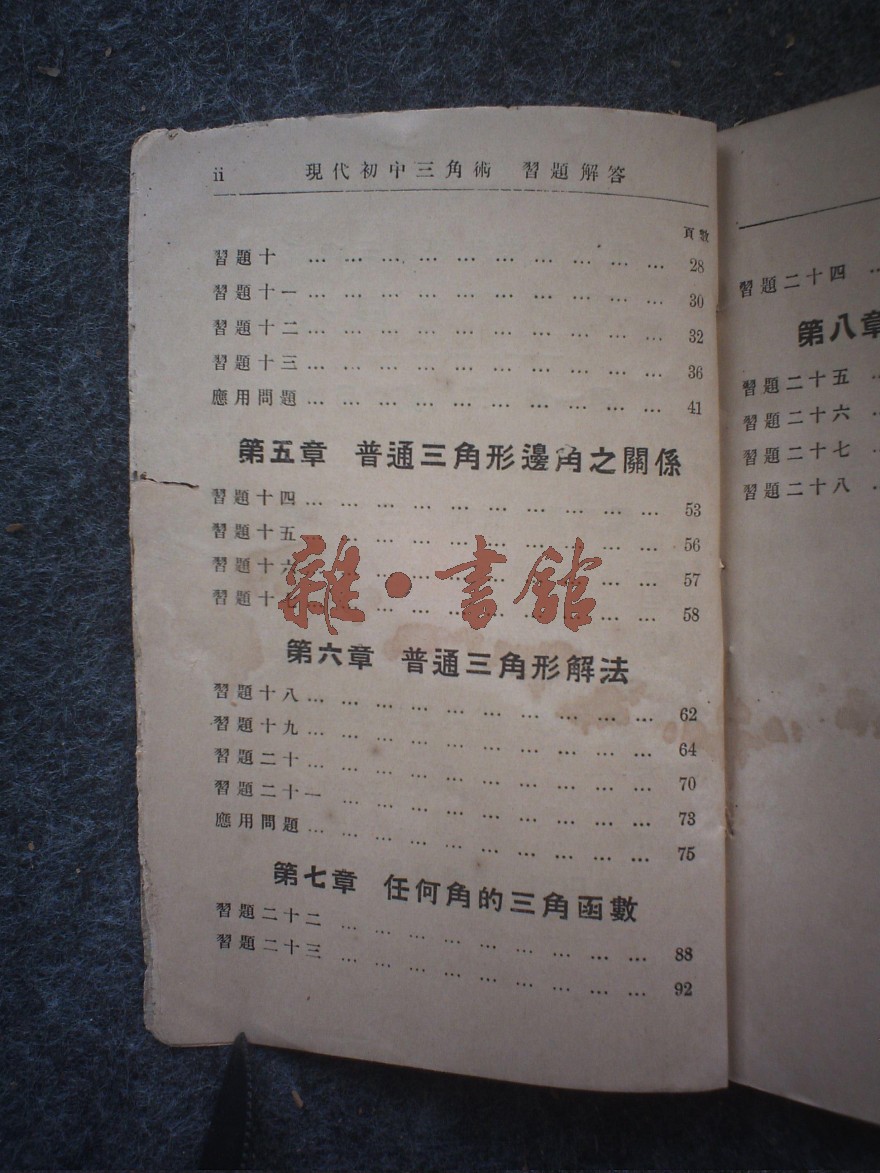 ii 現代初中三角術 習題解答
頁數
習題十 … … … … … … … … … … 28
習題十一 … … … … … … … … … … 30
習題十二 … … … … … … … … … … 32
習題十三 … … … … … … … … … … 36
應用問題 … … … … … … … … … … 41
第五章 普通三角形邊角之關係
習題十四 … … … … … … … … … … 53
習題十五 … … … … … … … … … … 56
習題十六 … … … … … … … … … … 57
習題十七 … … … … … … … … … … 58
雜·書館
第六章 普通三角形解法
習題十八 … … … … … … … … … … 62
習題十九 … … … … … … … … … … 64
習題二十 … … … … … … … … … … 70
習題二十一 … … … … … … … … … 73
應用問題 … … … … … … … … … … 75
第七章 任何角的三角函數
習題二十二 … … … … … … … … … 88
習題二十三 … … … … … … … … … 92
習題二十四 …
第八章
習題二十五 …
習題二十六 …
習題二十七 …
習題二十八 …